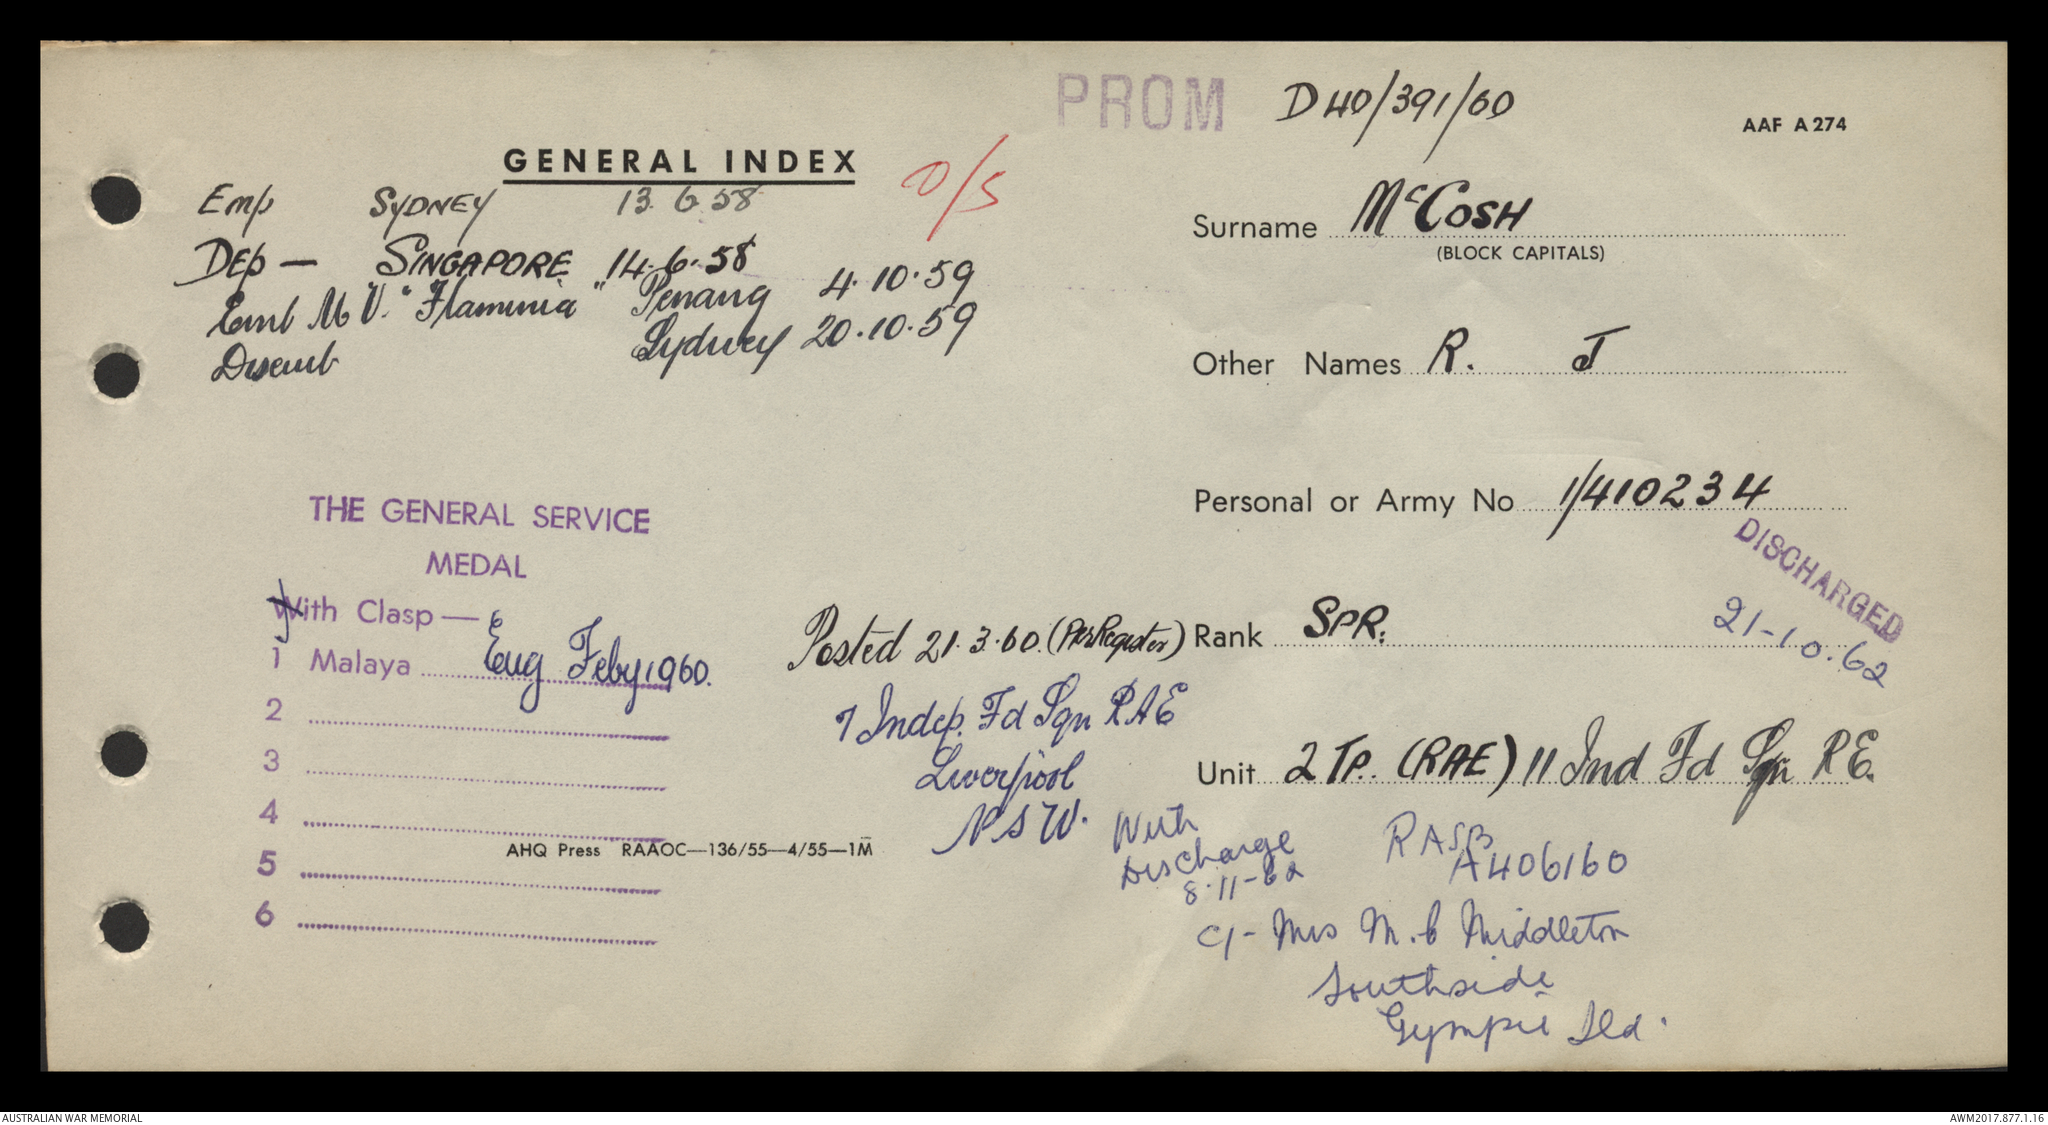 PROM D40/391/60
AAF A274
GENERAL INDEX
O/S
Emp SYDNEY 13.6.58
Dep — SINGAPORE 14.6.58
Emb M.V. "Flaminia" Penang 4.10.59
Disemb Sydney 20.10.59
Surname McCOSH
(BLOCK CAPITALS)
Other Names R. J
Personal or Army No 1/410234
DISCHARGED
21-10.62
Rank SPR.
Unit 2 TP. (RAE) 11 Ind Fd Sqn RE.
THE GENERAL SERVICE
MEDAL
With Clasp —
1 Malaya Eng Feby 1960.
2
3
4
5
6
Posted 21.3.60 (Per Register)
7 Indep. Fd Sqn RAE
Liverpool
N S W.
AHQ Press RAAOC—136/55—4/55—1M
With
Discharge
8.11-62
RASB
A406160
C/- Mrs M. C Middleton
Southside
Gympie Qld.
AUSTRALIAN WAR MEMORIAL
AWM2017.877.1.16